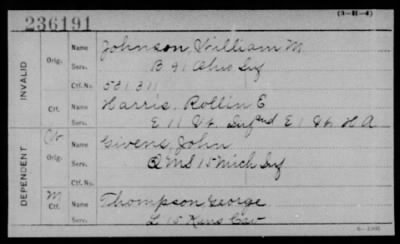 (3-H-4)
236191
INVALID
Orig. Name Johnson, William M
Serv. B 91 Ohio Inf
Ctf. No. 581311
Ctf. Name Harris, Rollin E
Serv. E 11 Vt. Inf and E 1 Vt. H A
DEPENDENT
Name Givens, John
Ctf. Serv. QMS 15 Mich Inf
M Name Thompson George
Ctf. Serv. L 15 Kans Cav